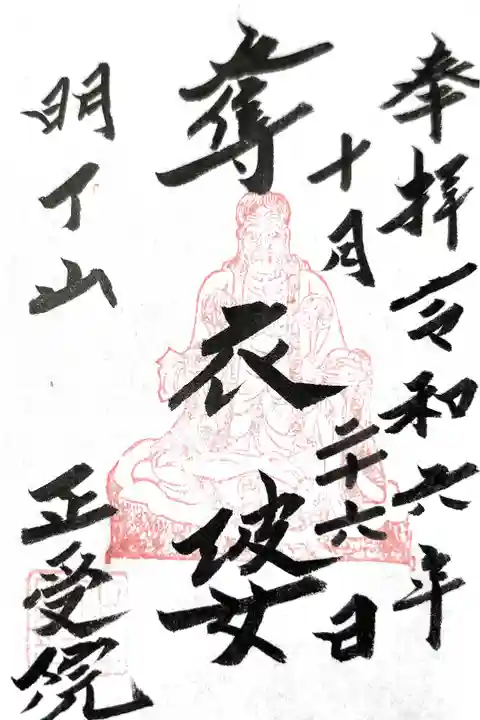 奉拝令和六年
十月二十六日
奪衣婆
明了山
正受院